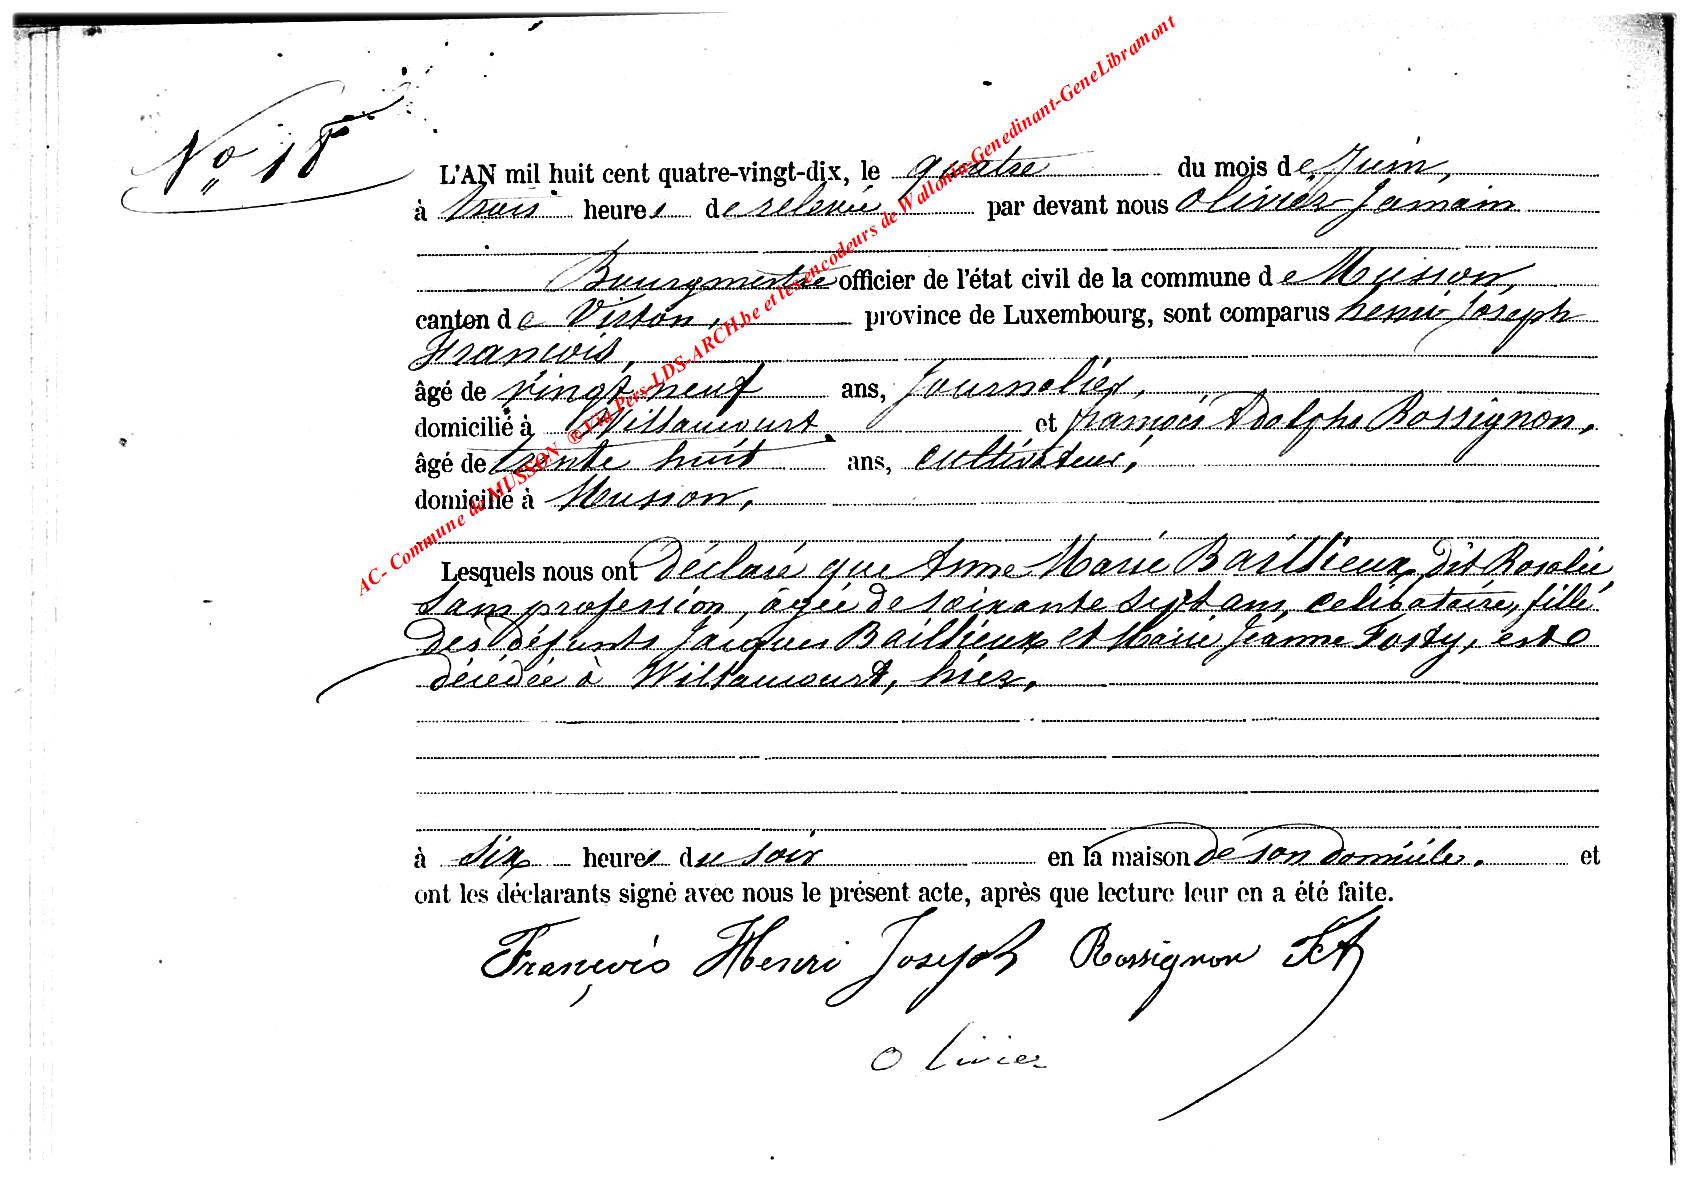 No 18
L'AN mil huit cent quatre-vingt-dix, le quatre du mois de Juin,
à trois heures de relevée, par devant nous Olivier Jamain
Bourgmestre officier de l'état civil de la commune de Musson,
canton de Virton, province de Luxembourg, sont comparus henri Joseph
François,
âgé de vingt neuf ans, Journalier,
domicilié à Willancourt et françois Adolphe Rossignon,
âgé de trente huit ans, cultivateur,
domicilié à Musson,
Lesquels nous ont déclaré que Anne Marie Baillieux dit Rosalie
sans profession, âgée de soixante sept ans, celibataire, fille
des défunts Jacques Baillieux et Marie Jeanne Fosty, est
décédée à Willancourt, hier,
à six heures du soir en la maison de son domicile. et
ont les déclarants signé avec nous le présent acte, après que lecture leur en a été faite.
François Henri Joseph Rossignon FA
Olivier
AC- Commune de MUSSON ® Via Pers-LDS-ARCH.be et les encodeurs de Wallonia-Genedinant-GeneLibramont